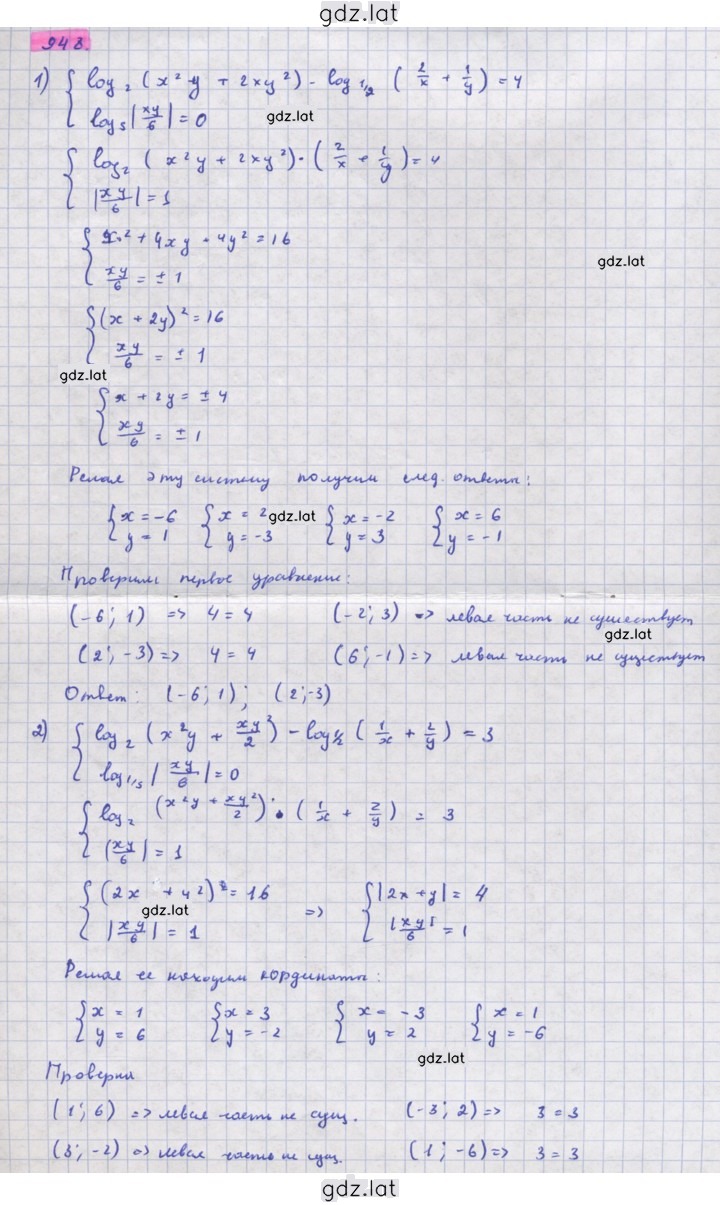 gdz.lat
948.
1) { log₂ (x²y + 2xy²) - log ₁/₂ (2/x + 1/y) = 4
log₅ |xy/6| = 0 gdz.lat
{ log₂ (x²y + 2xy²)·(2/x + 1/y) = 4
|xy/6| = 1
{ x² + 4xy + 4y² = 16
xy/6 = ± 1 gdz.lat
{ (x + 2y)² = 16
xy/6 = ± 1
gdz.lat
{ x + 2y = ± 4
xy/6 = ± 1
Решая эту систему получим след. ответы:
{ x = -6 { x = 2 gdz.lat { x = -2 { x = 6
y = 1 y = -3 y = 3 y = -1
Проверим первое уравнение:
(-6; 1) => 4 = 4 (-2; 3) => левая часть не существует
gdz.lat
(2; -3) => 4 = 4 (6; -1) => левая часть не существует
Ответ: (-6; 1); (2; -3)
2) { log₂ (x²y + xy²/2) - log½ (1/x + 2/y) = 3
log₁/₅ |xy/6| = 0
{ log₂ (x²y + xy²/2)·(1/x + 2/y) = 3
|xy/6| = 1
{ (2x + y²)² = 16 => { |2x + y| = 4
gdz.lat
|xy/6| = 1 |xy/6| = 1
Решая ее находим кординаты:
{ x = 1 { x = 3 { x = -3 { x = 1
y = 6 y = -2 y = 2 y = -6
gdz.lat
Проверка
(1; 6) => левая часть не сущ. (-3; 2) => 3 = 3
(3; -2) => левая часть не сущ. (1; -6) => 3 = 3
gdz.lat